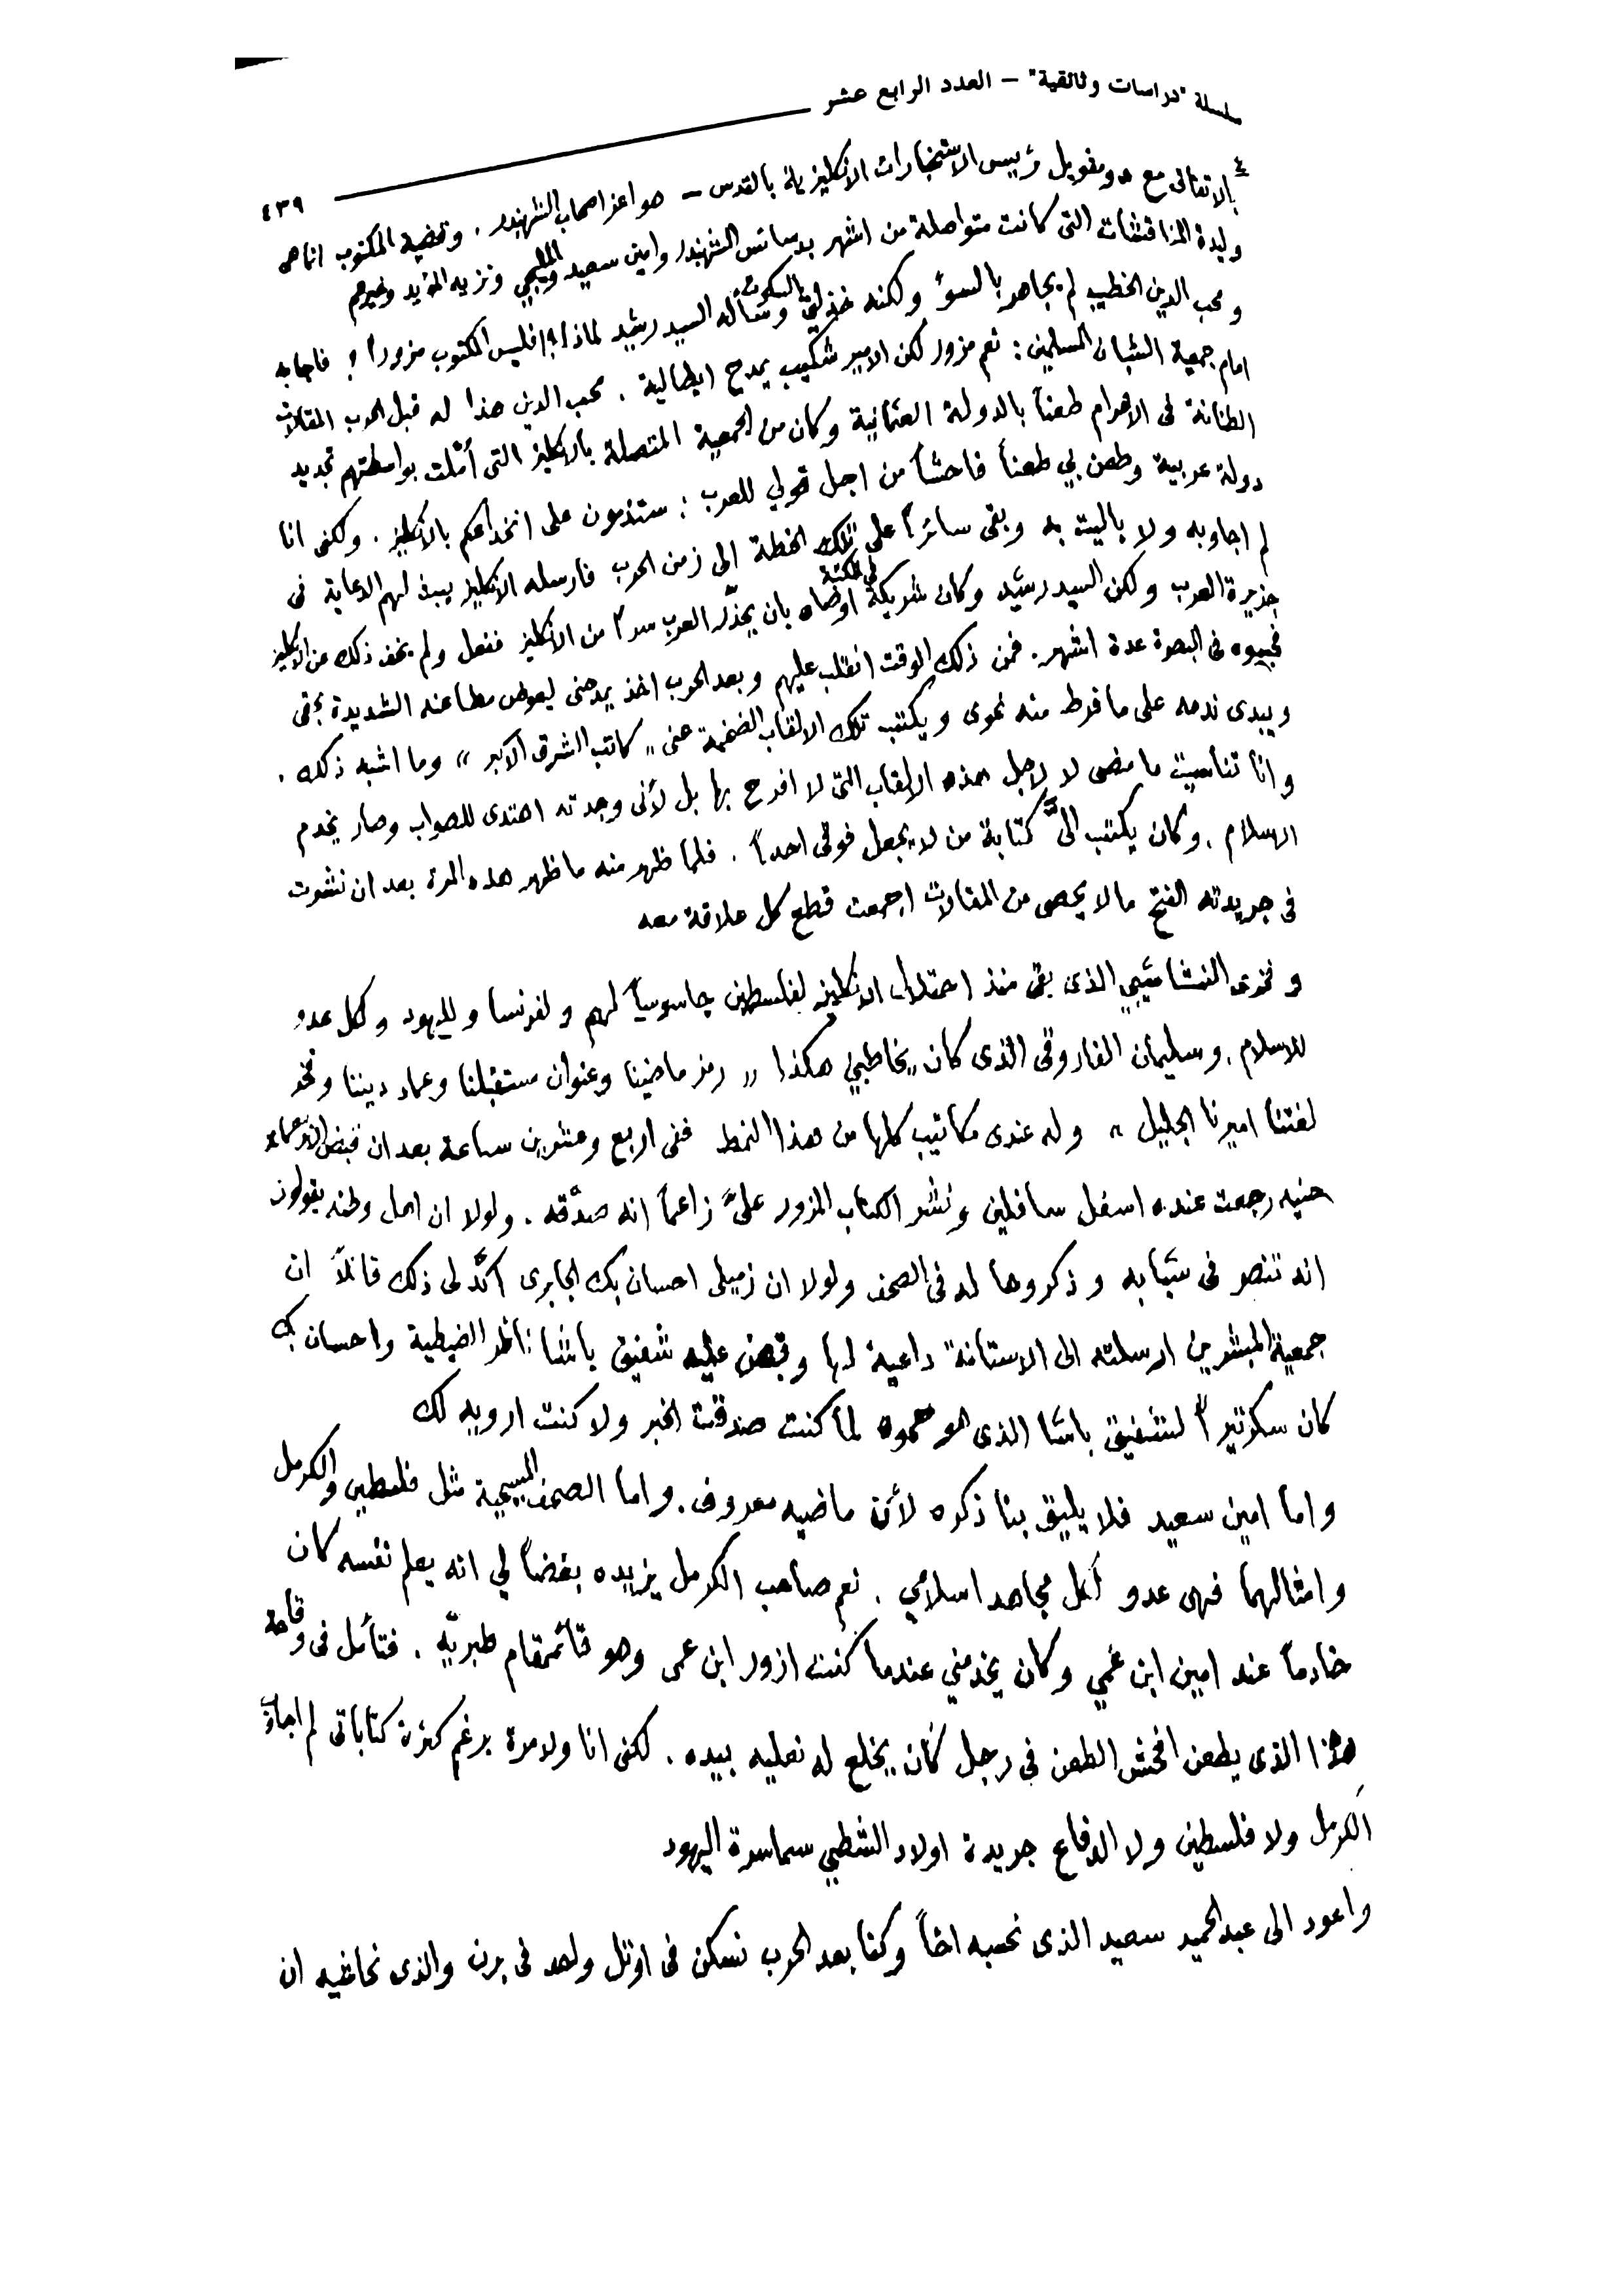 سلسلة "دراسات وثائقية" – العدد الرابع عشر
٤٣٩
٤
بالاتفاق مع رئيس الاستخبارات الانكليزية بالقدس – هو اعز اصحاب الشهبندر . وقضية المكتوب انما هي
وليدة المناقشات التى كانت متواصلة من اشهر بدسائس الشهبندر وامين سعيد ونزيه المؤيد وغيرهم
ومحب الدين الخطيب لم يجاهر بالسوء ولكنه خذلني بالسكوت وسأله السيد رشيد لماذا ؟! افليس المكتوب مزوراً ؟ فاجابه
امام جمعية الشبان المسلمين : نعم مزور لكن الامير شكيب يمدح ايطالية . محب الدين هذا له قبل الحرب المقالات
الطنانة فى الاهرام طعناً بالدولة العثمانية وكان من الجمعية المتصلة بالانكليز التى أمّلت بواسطتهم تجديد
دولة عربية وطعن بي طعناً فاحشاً من اجل قولي للعرب : ستندمون على انخداعكم بالانكليز . ولكنى انا
لم اجاوبه ولا باليت به وبقى سائراً على تلك الخطة الى زمن الحرب فارسله الانكليز يبث لهم الدعاية فى
جزيرة العرب ولكن السيد رشيد وكان شريكه فى المكتبة اوصاه بان يحذّر العرب سراً من الانكليز ففعل ولم يخف ذلك عن الانكليز
فحبسوه فى البصرة عدة اشهر . فمن ذلك الوقت انقلب عليهم وبعد الحرب اخذ يمدحنى ليعوض مطاعنه الشديدة بحقى
ويبدى ندمه على ما فرط منه نحوى ويكتب تلك الالقاب الضخمة عنى „ كاتب الشرق الاكبر “ وما اشبه ذلك .
وانا تناسيت ما مضى لا لاجل هذه الالقاب التى لا افرح بها بل لأنى وجدته اهتدى للصواب وصار يخدم
الاسلام . وكان يكتب الىّ كتابة من لا يجعل فوقى احداً . فلما ظهر منه ما ظهر هذه المرة بعد ان نشرت
فى جريدته الفتح ما لا يحصى من المقالات اجمعت قطع كل علاقة معه
وفخرى النشاشيبي الذى بقى منذ احتلال الانكليز لفلسطين جاسوساً لهم ولفرنسا ولليهود ولكل عدو
للاسلام . وسليمان الفاروقى الذى كان يخاطبني هكذا „ رمز ماضينا وعنوان مستقبلنا وعماد ديننا وفخر
لغتنا اميرنا الجليل “ وله عندى مكاتيب كلها من هذا النمط ففى اربع وعشرين ساعة بعد ان قبض
جنيه رجعت عنده اسفل سافلين ونشر الكتاب المزور علىّ زاعماً انه صدّقه . ولولا ان اهل وطنه يقولون
انه تنصر فى شبابه وذكروها له فى الصحف ولولا ان زميلى احسان بك الجابرى اكّد لى ذلك قائلاً ان
جمعية المبشرين ارسلته الى الاستانة داعية لها وقبض عليه شفيق باشا ناظر الضبطية واحسان بك
كان سكرتيراً لشفيق باشا الذى هو حموه لما كنت صدقت الخبر ولا كنت ارويه لك
واما امين سعيد فلا يليق بنا ذكره لأن ماضيه معروف . واما الصحف المسيحية مثل فلسطين والكرمل
وامثالهما فهى عدو لكل مجاهد اسلامي . نعم صاحب الكرمل يزيده بغضاً لي انه يعلم نفسه كان
خادماً عند امين ابن عمي وكان يخدمني عندما كنت ازور ابن عمى وهو قائممقام طبريّه . فتأمل فى وقاحة
هذا الذى يطعن افحش الطعن فى رجل كان يخلع له نعليه بيده . لكنى انا ولا مرة برغم كثرة كتاباتى لم اجاوب
الكرمل ولا فلسطين ولا الدفاع جريدة اولاد الشطي سماسرة اليهود
واعود الى عبد الحميد سعيد الذى نحسبه اخاً وكنا بعد الحرب نسكن فى اوتل واحد فى برن والذى ان